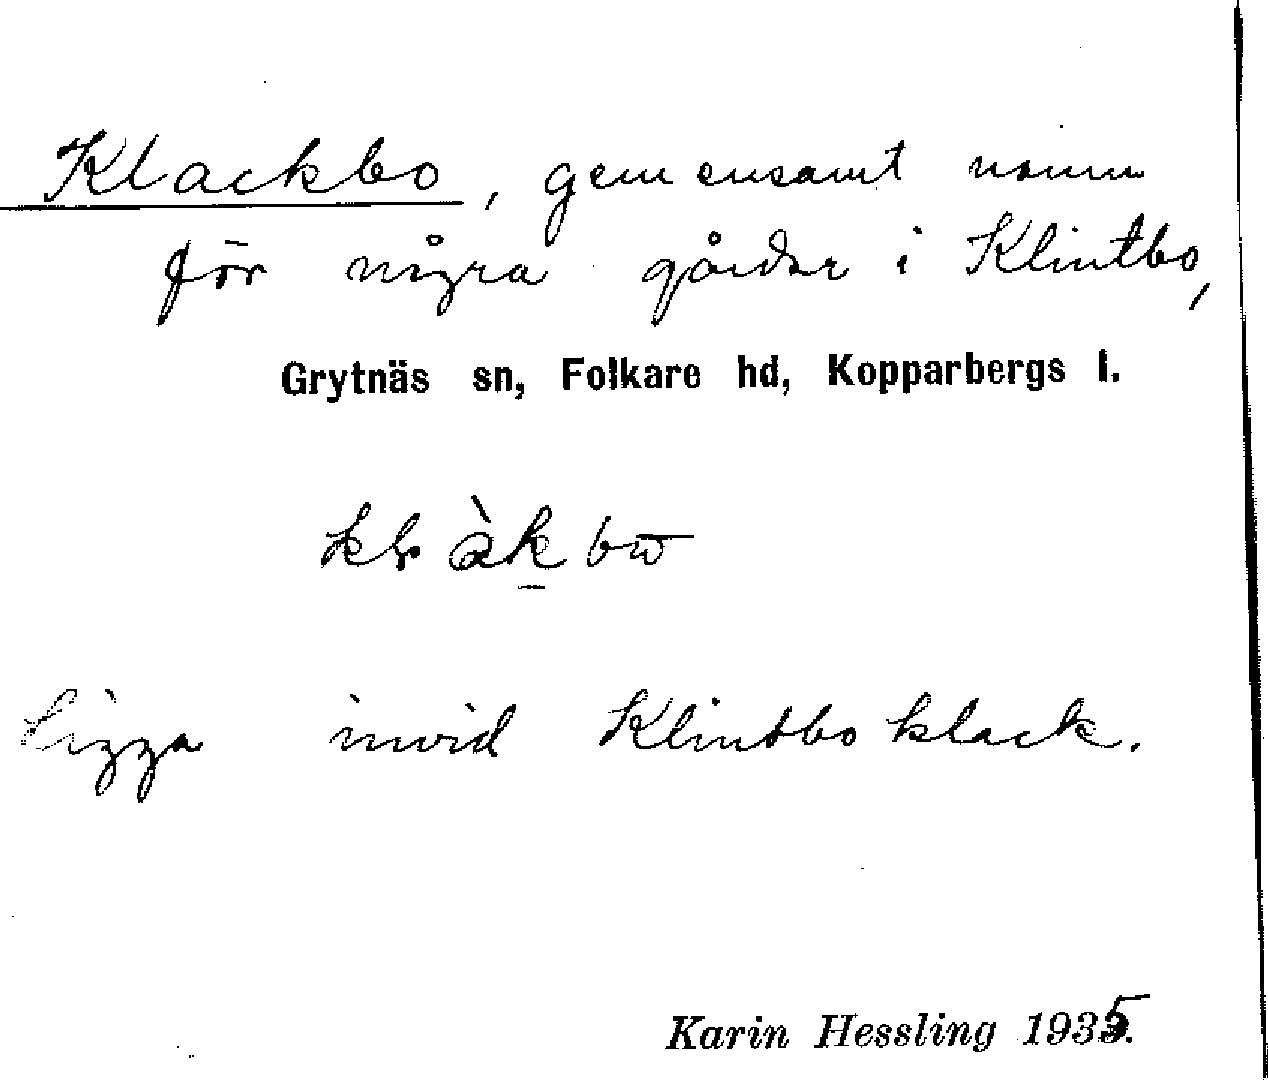 Klackbo, gemensamt namn
för några gårdar i Klintbo,
Grytnäs sn, Folkare hd, Kopparbergs l.
Ligga invid Klintbo klack.
Karin Hessling 1935.